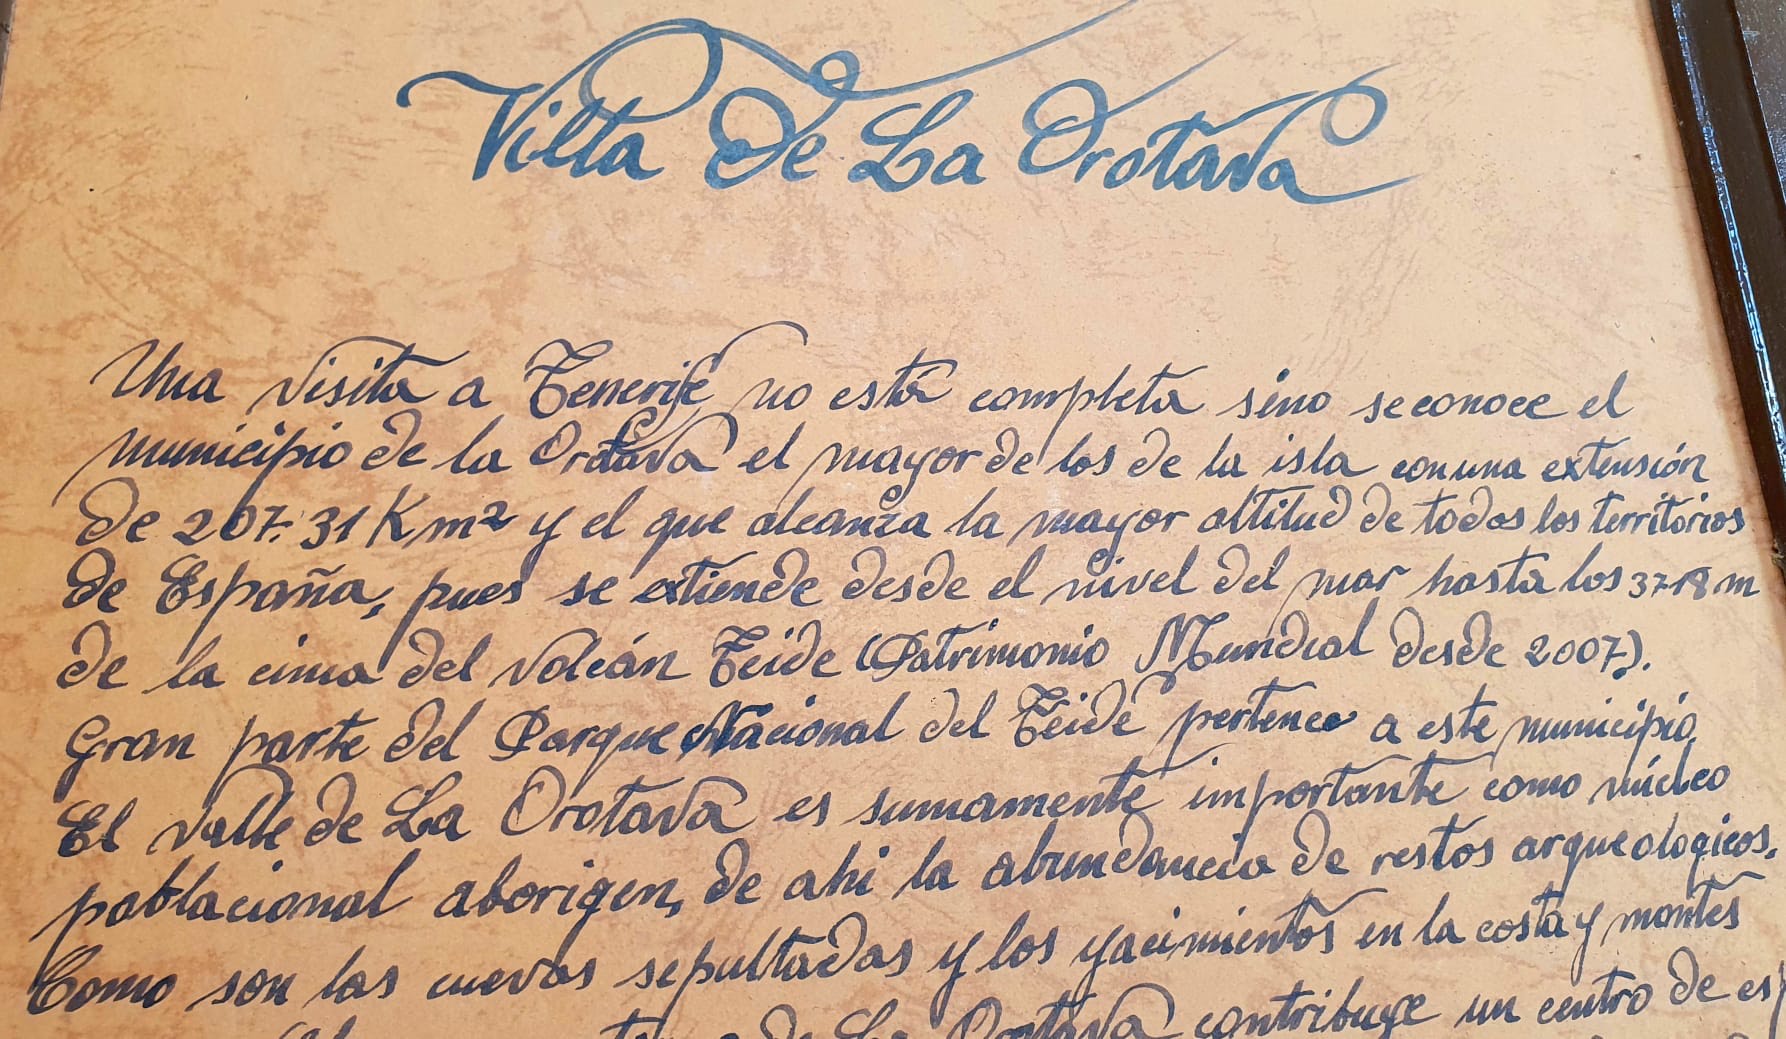 Villa de La Orotava
Una visita a Tenerife no está completa sino se conoce el
municipio de la Orotava el mayor de los de la isla con una extensión
de 207.31 Km² y el que alcanza la mayor altitud de todos los territorios
de España, pues se extiende desde el nivel del mar hasta los 3718 m
de la cima del volcán Teide (Patrimonio Mundial desde 2007).
Gran parte del Parque Nacional del Teide pertenece a este municipio.
El valle de La Orotava es sumamente importante como núcleo
poblacional aborigen, de ahi la abundancia de restos arqueologicos.
Como son las cuevas sepultadas y los yacimientos en la costa y montes
de La Orotava contribuye un centro de